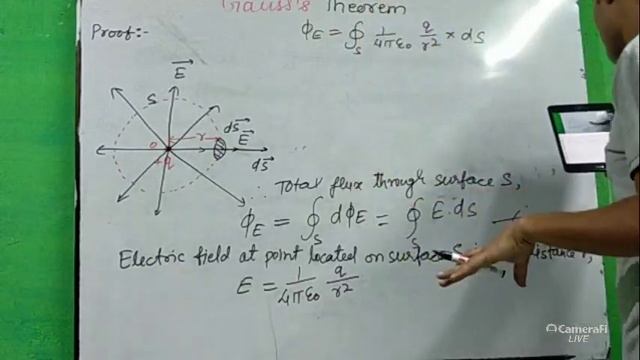 Gauss's Theorem
Proof:-
ϕE = ∮S 1/4πε0 q/r² × dS
E→
S
r
dS→
E→
O
+q
dS→
Total flux through surface S,
ϕE = ∮S dϕE = ∮S E.dS
Electric field at point located on surface S distance r,
E = 1/4πε0 q/r²
CameraFi
LIVE